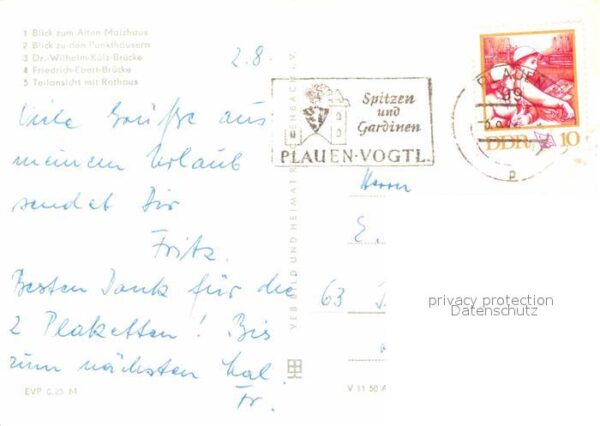 1 Blick zum Alten Malzhaus
2 Blick zu den Punkthäusern
3 Dr.-Wilhelm-Külz-Brücke
4 Friedrich-Ebert-Brücke
5 Teilansicht mit Rathaus
2.8.
Viele Grüße aus
meinem Urlaub
sendet Dir
Fritz.
Besten Dank für die
2 Plaketten! Bis
zum nächsten Mal.
Fr.
EVP 0,25 M
VEB BILD UND HEIMAT REICHENBACH I. V.
V 11 50 A
Spitzen
und
Gardinen
PLAUEN·VOGTL.
PLAUEN
99
p
DDR 10
Herrn
E.
63
privacy protection
Datenschutz